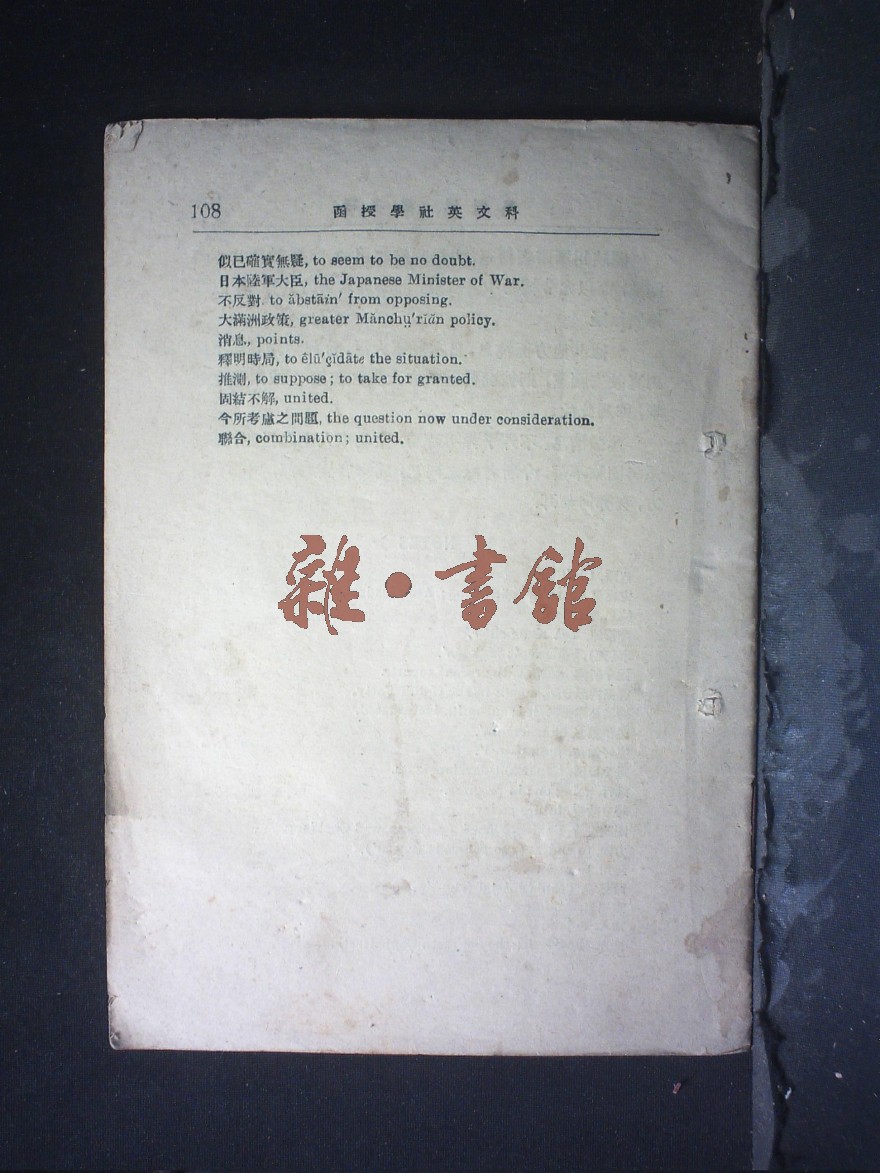 108 函授學社英文科
似已確實無疑, to seem to be no doubt.
日本陸軍大臣, the Japanese Minister of War.
不反對, to ăbstāin′ from opposing.
大滿洲政策, greater Mănchụ′rĭăn policy.
消息, points.
釋明時局, to ēlū′çĭdāte the situation.
推測, to suppose; to take for granted.
固結不解, united.
今所考慮之問題, the question now under consideration.
聯合, combination; united.
雜·書館